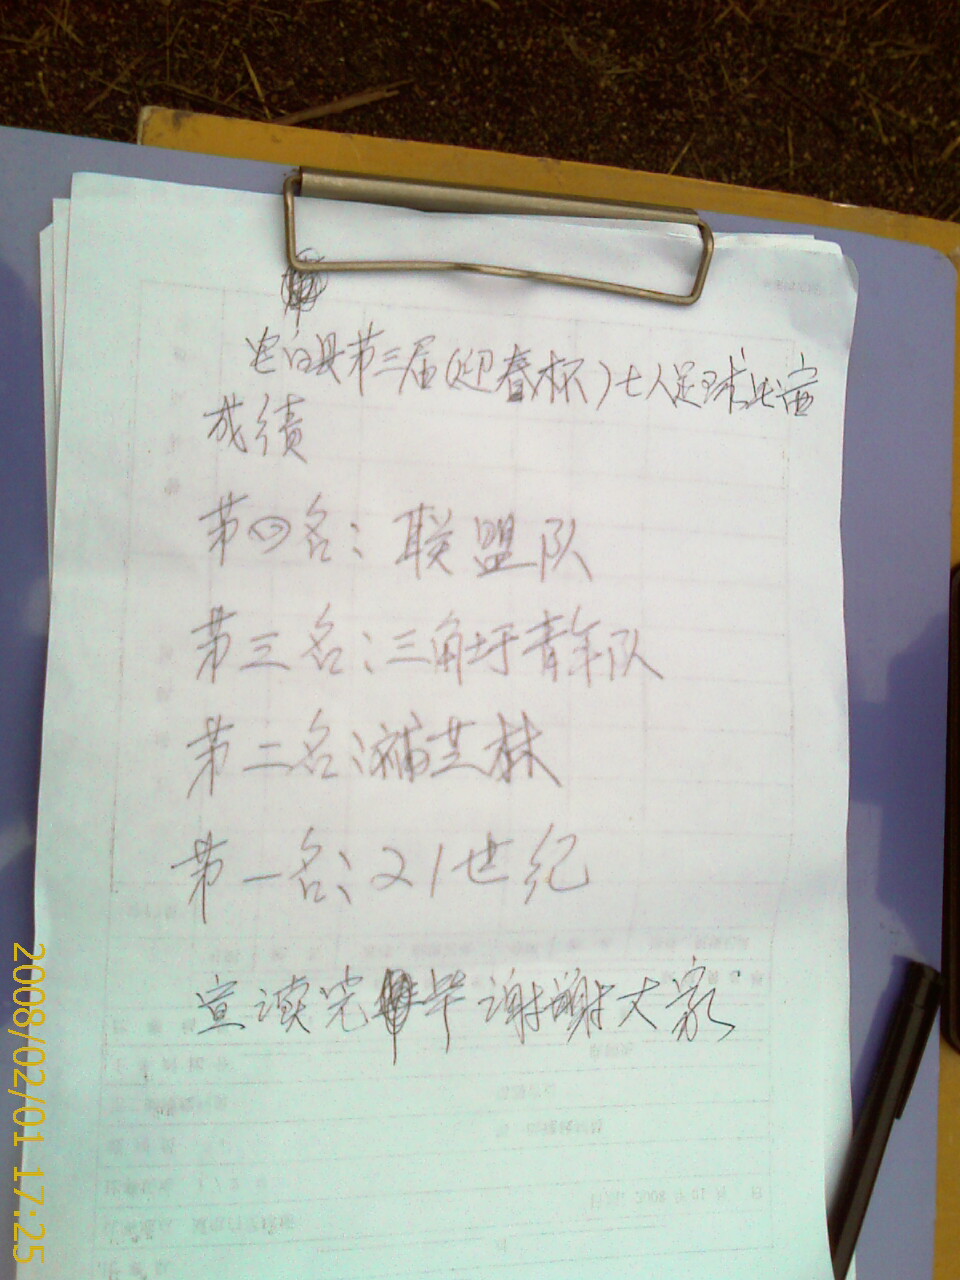 电白县第三届(迎春杯)七人足球比赛
成绩
第四名:联盟队
第三名:三角圩青年队
第二名:补芝林
第一名:21世纪
宣读完毕谢谢大家
2008/02/01 17:25